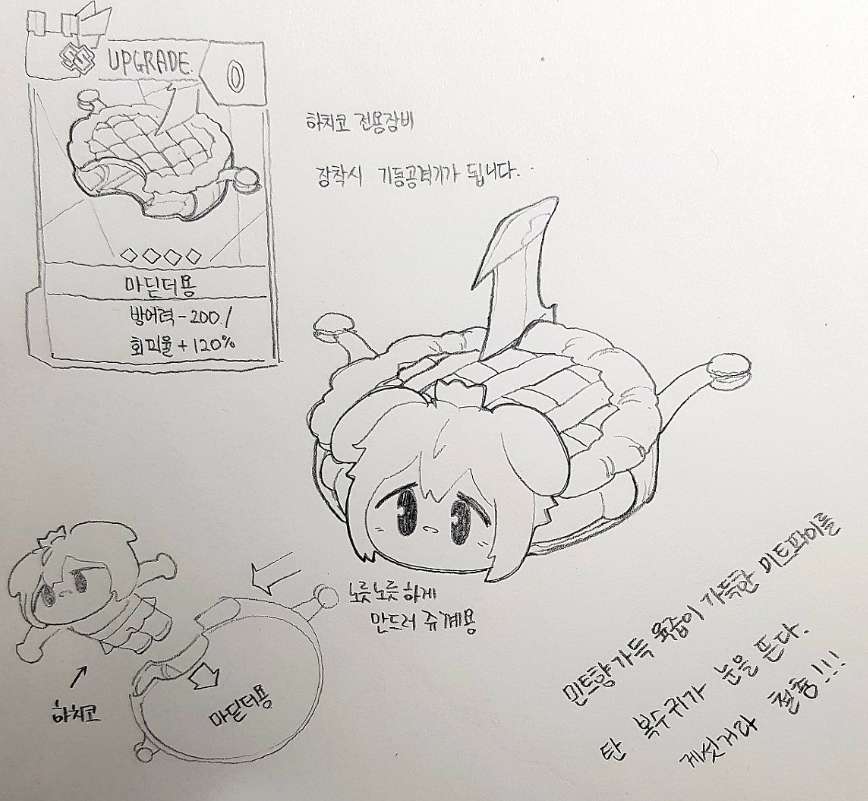 UPGRADE.
0
마딛더용
방어력 - 200 /
회피율 + 120%
하치코 전용장비
장착시 기동공격기가 됩니다..
노릇노릇하게
만드러 쥬계용
하치코
마딛더용
미트향가득 육즙이 가득한 미트파이를
탄 복수귀가 눈을 뜬다.
게섯거라 철충!!!